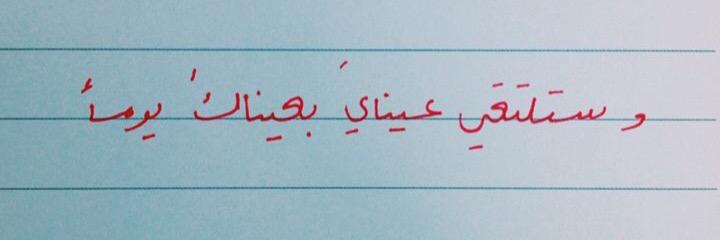 و ستلتقي عينايَ بعيناكَ يوماً